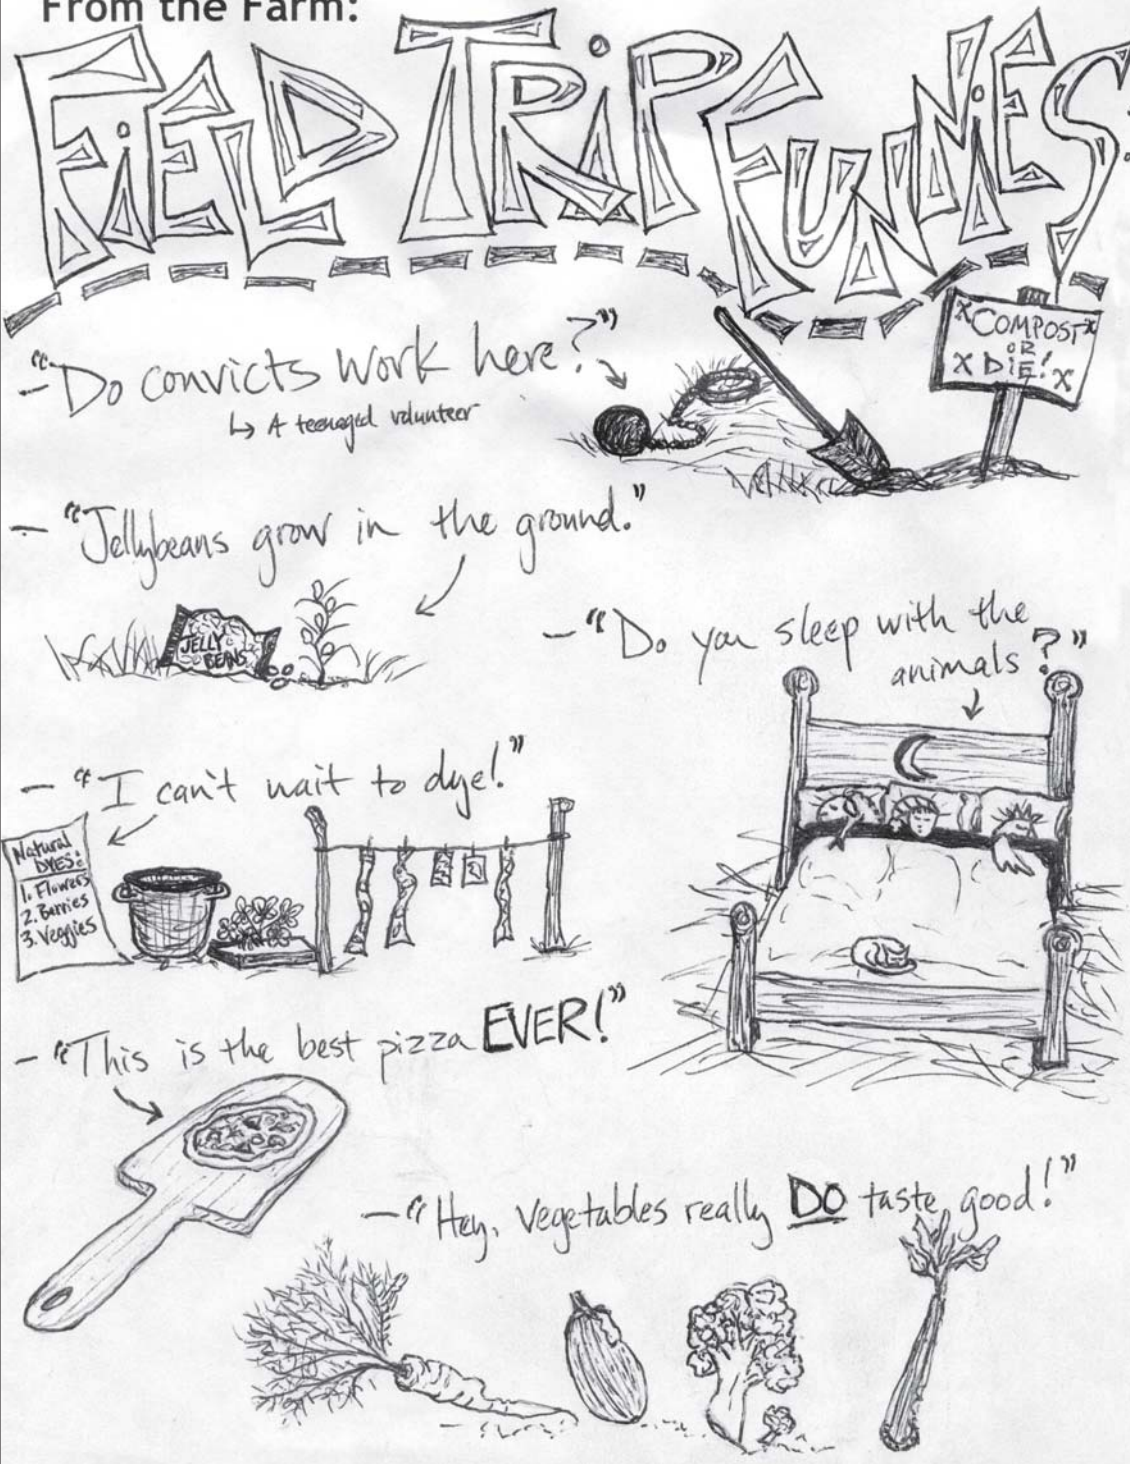 From the Farm:
FiELD TRiP FUNNiES:
- "Do convicts work here?"
↳ A teenaged volunteer
COMPOST
OR
DiE!
- "Jellybeans grow in the ground."
JELLY
BEANS
- "Do you sleep with the
animals?"
- "I can't wait to dye!"
Natural
DYES:
1. Flowers
2. Berries
3. Veggies
- "This is the best pizza EVER!"
- "Hey, vegetables really DO taste good!"